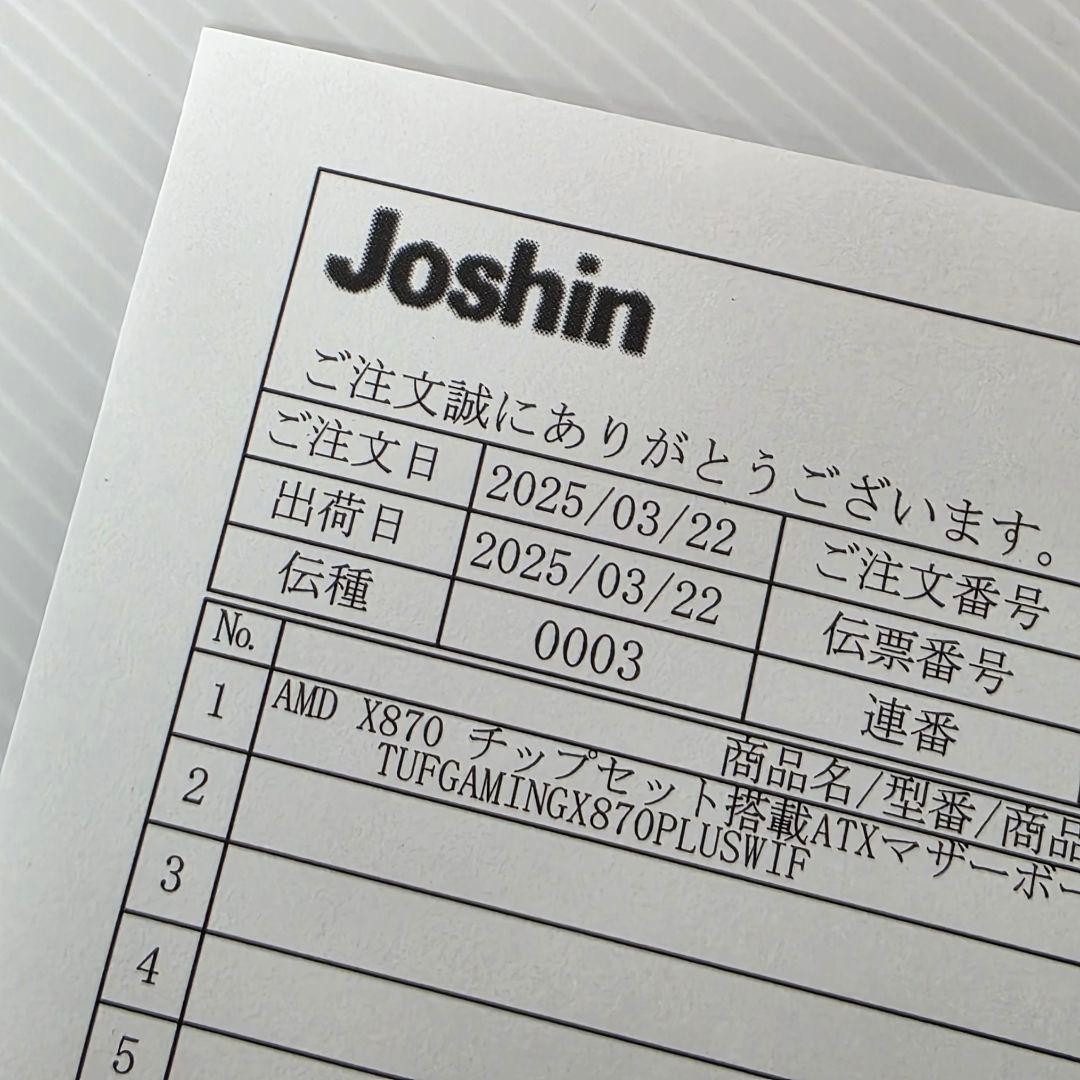 Joshin
ご注文誠にありがとうございます。
ご注文日 2025/03/22 ご注文番号
出荷日 2025/03/22 伝票番号
伝種 0003 連番
No. 商品名/型番/商品
1 AMD X870 チップセット搭載ATXマザーボー
TUFGAMINGX870PLUSWIF
2
3
4
5